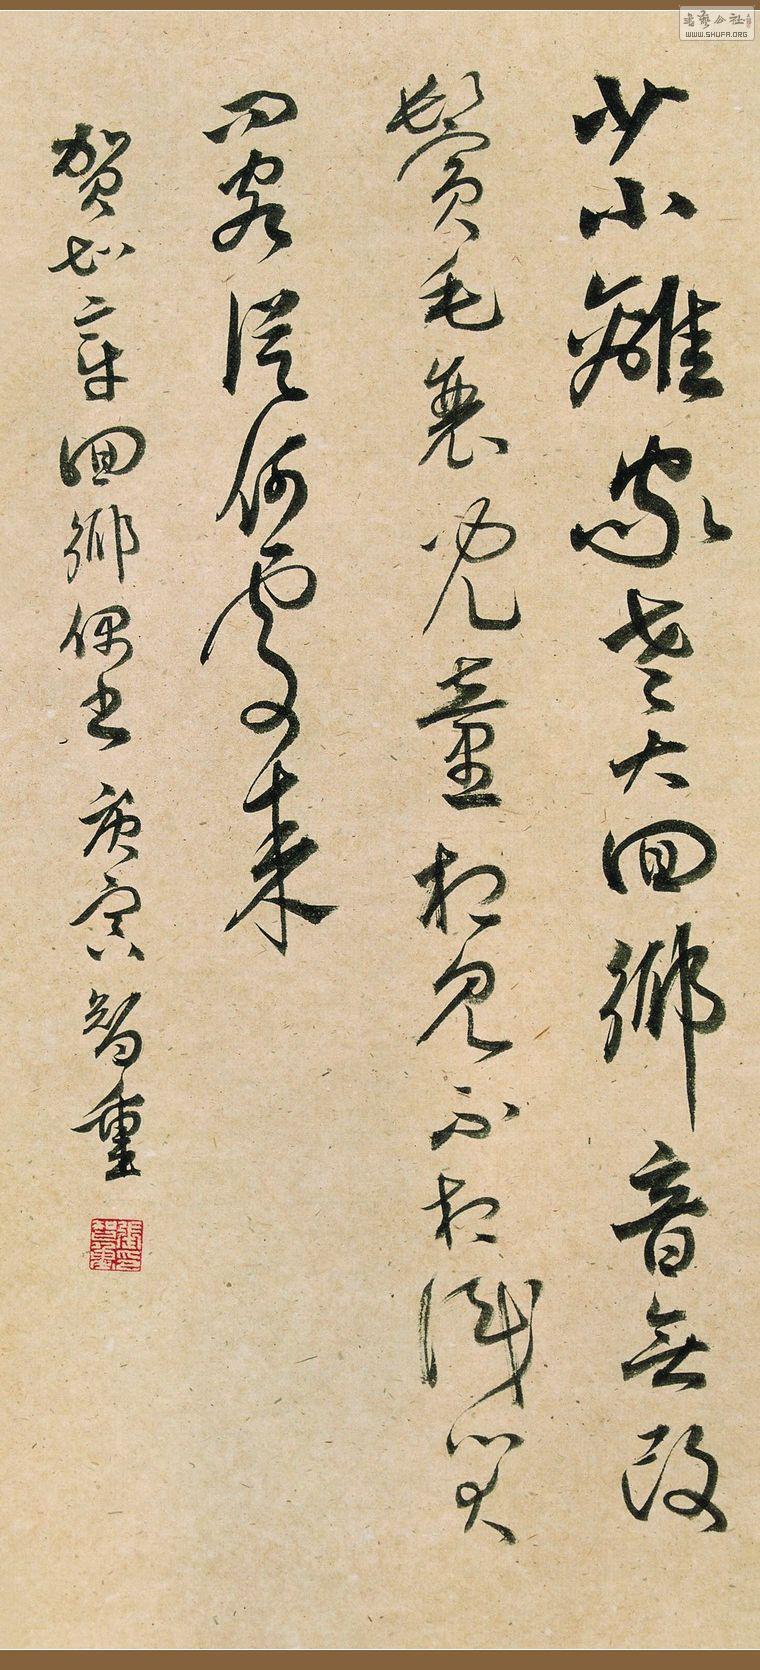 少小離家老大回鄉音無改
鬢毛衰兒童相見不相識笑
問客從何處來
賀知章回鄉偶書 庚寅智重
張智重印
書藝公社
WWW.SHUFA.ORG